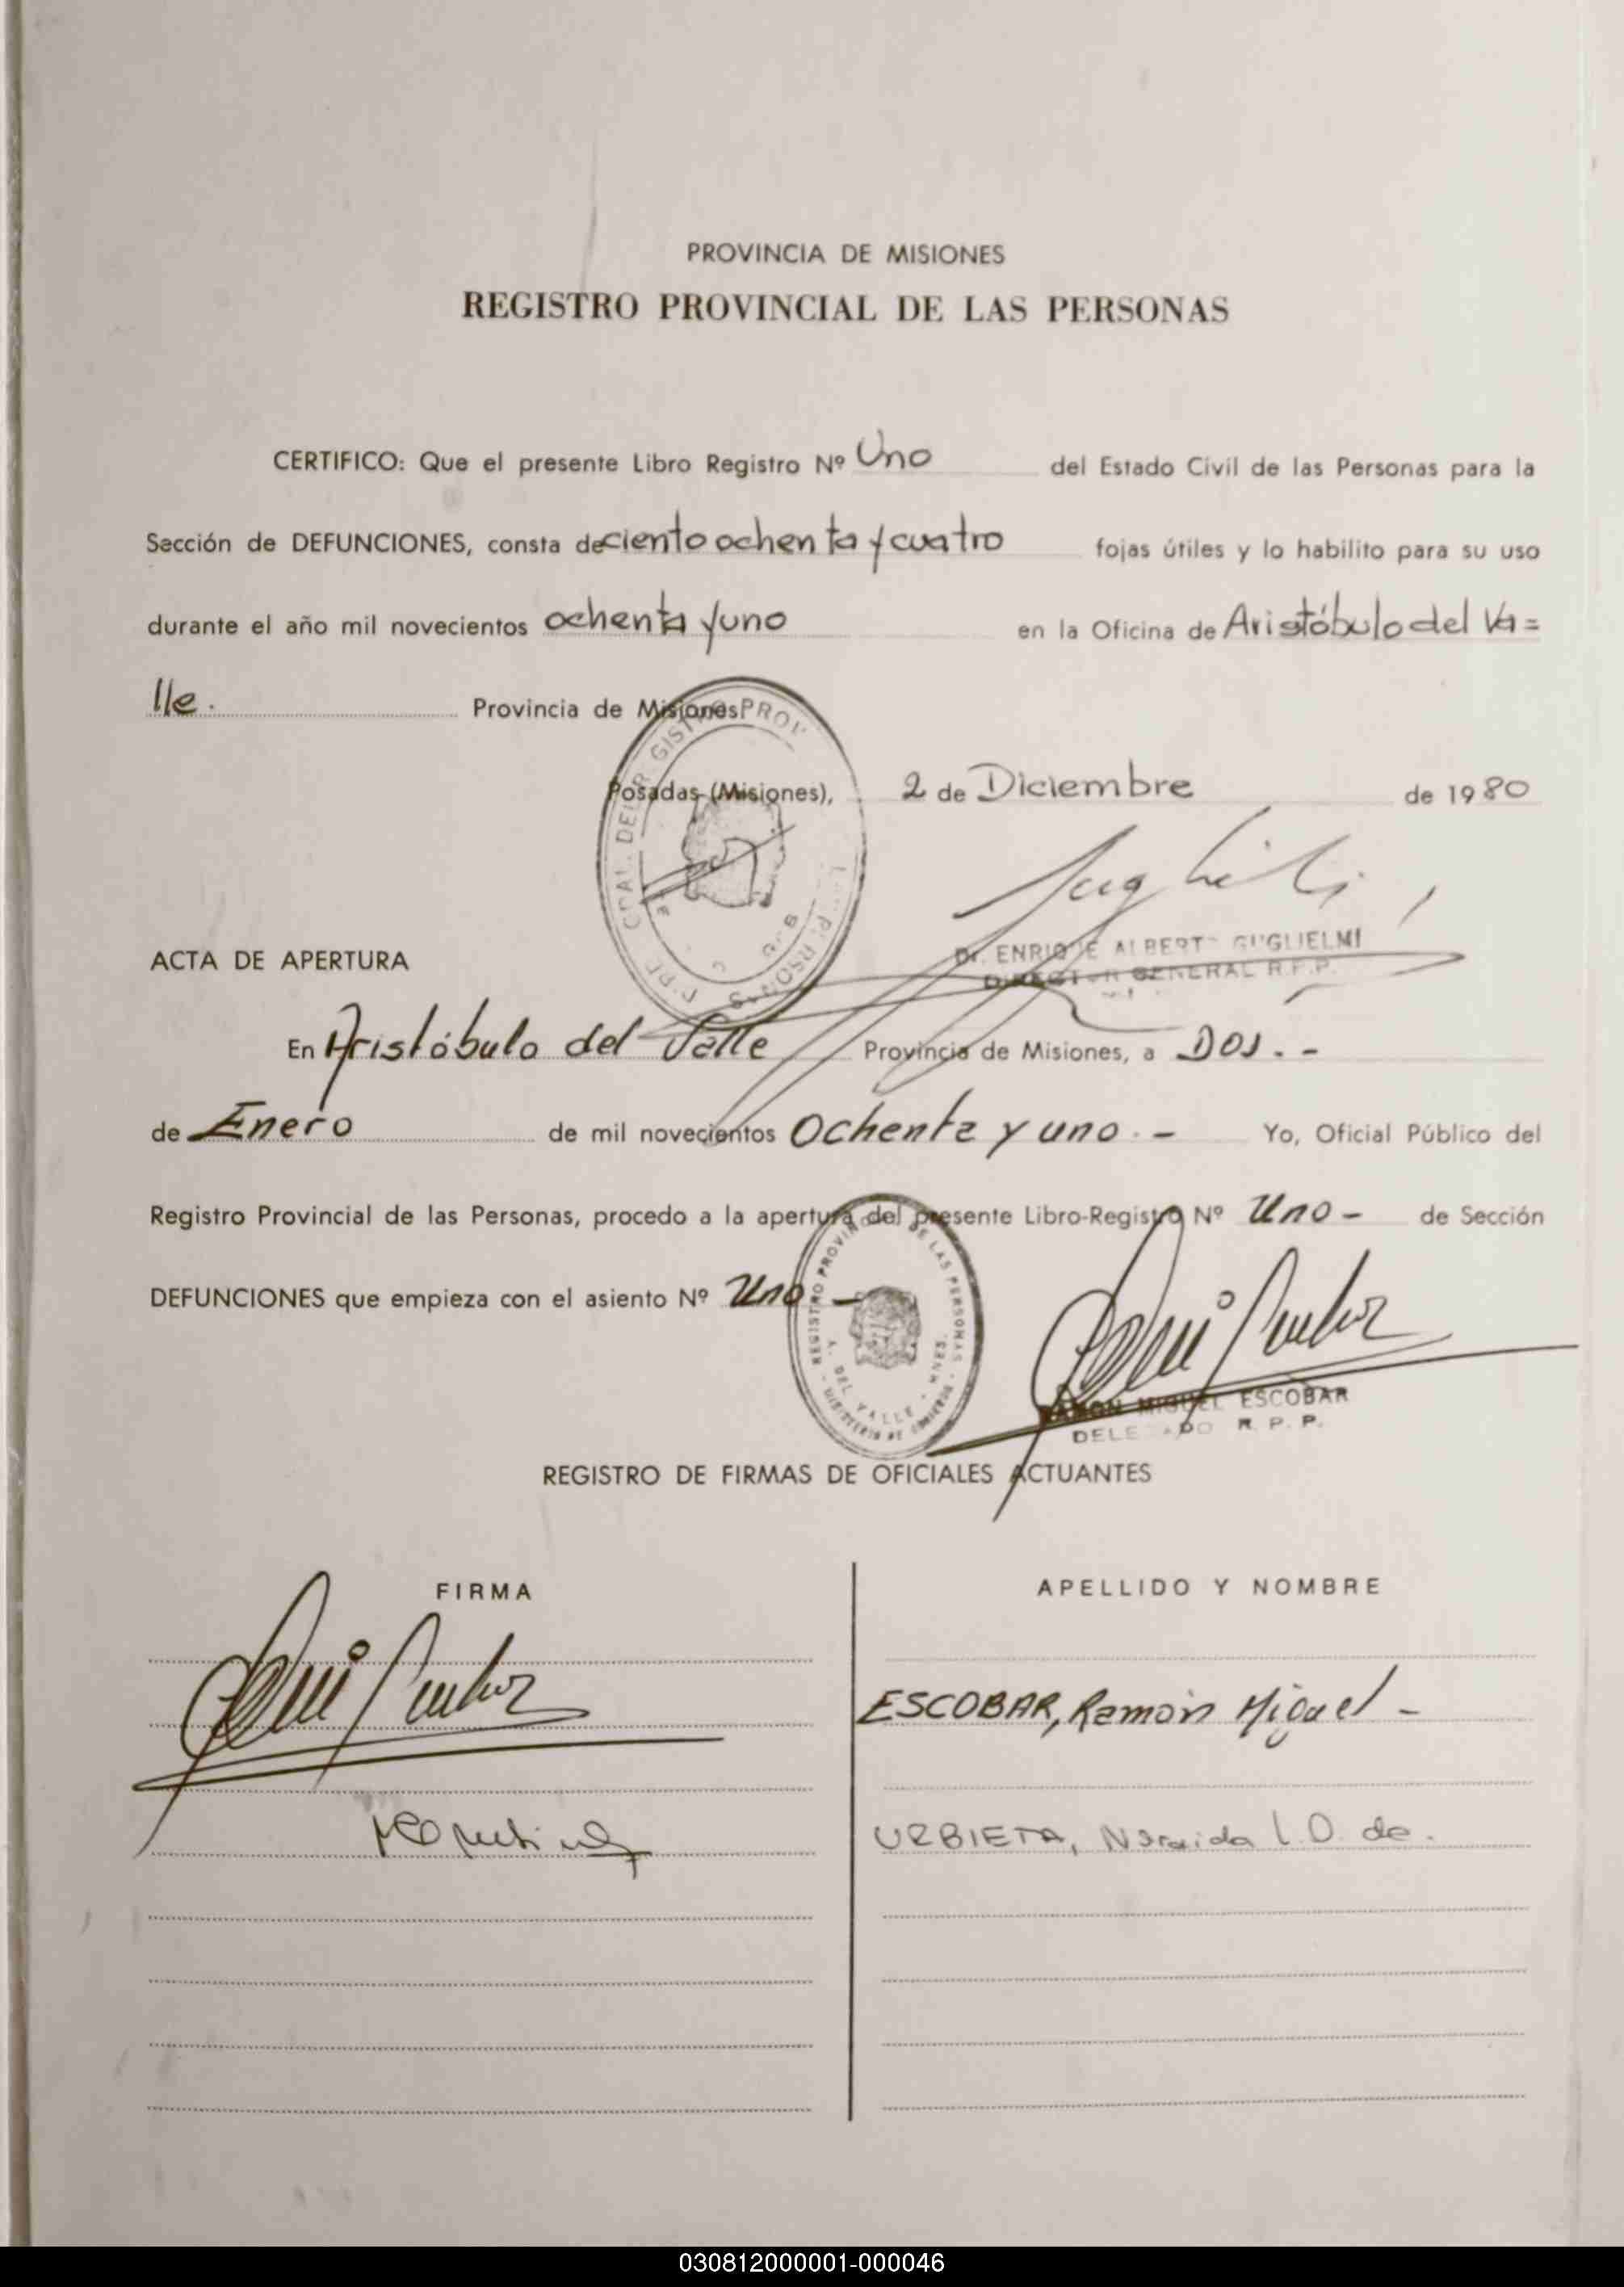 PROVINCIA DE MISIONES
REGISTRO PROVINCIAL DE LAS PERSONAS
CERTIFICO: Que el presente Libro Registro Nº Uno del Estado Civil de las Personas para la
Sección de DEFUNCIONES, consta de ciento ochenta y cuatro fojas útiles y lo habilito para su uso
durante el año mil novecientos ochenta y uno en la Oficina de Aristóbulo del Va=
lle. Provincia de Misiones
Posadas (Misiones), 2 de Diciembre de 1980
Dr. ENRIQUE ALBERTO GUGLIELMI
DIRECTOR GENERAL R.P.P.
ACTA DE APERTURA
En Aristóbulo del Valle Provincia de Misiones, a Dos.-
de Enero de mil novecientos Ochenta y uno.- Yo, Oficial Público del
Registro Provincial de las Personas, procedo a la apertura del presente Libro-Registro Nº Uno- de Sección
DEFUNCIONES que empieza con el asiento Nº Uno-
REGISTRO PROVINCIAL DE LAS PERSONAS
A. DEL VALLE - MNES.
MINISTERIO DE GOBIERNO
RAMON MIGUEL ESCOBAR
DELEGADO R. P. P.
REGISTRO DE FIRMAS DE OFICIALES ACTUANTES
FIRMA
APELLIDO Y NOMBRE
ESCOBAR, Ramón Miguel -
URBIETA, L.D. de.
030812000001-000046